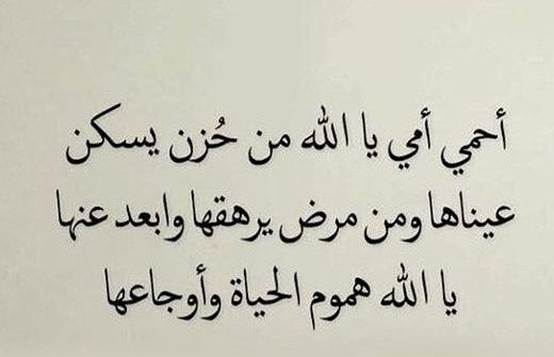 أحمي أمي يا الله من حُزن يسكن
عيناها ومن مرض يرهقها وابعد عنها
يا الله هموم الحياة وأوجاعها